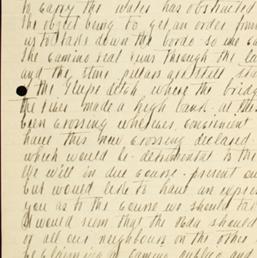 to carry the water has obstructed
the object being to get an order from
us to take down the bordo so she can
the camino real runs through the
and the stone pillars are still
the Slupe ditch, where the bridge
the river made a high bank at this
been crossing wherever convenient
have this new crossing declared
which would be detrimental to the
We will in due course present our
but would like to have an expres
you as to the course we should take
would seem that the Hda should
of all our neighbours on the other
be claiming a camino publico and